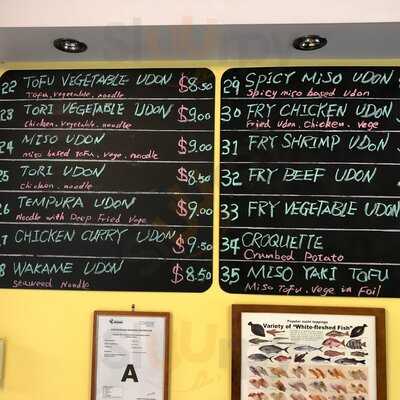 22 TOFU VEGETABLE UDON $8.50
Tofu, vegetable, noodle
23 TORI VEGETABLE UDON $9.00
Chicken, vegetable, noodle
24 MISO UDON $9.00
miso based Tofu, vege, noodle
25 TORI UDON $8.50
Chicken, noodle
26 TEMPURA UDON $9.00
Noodle with Deep Fried Vege
27 CHICKEN CURRY UDON $9.50
28 WAKAME UDON $8.50
seaweed Noodle
29 SPICY MISO UDON
Spicy miso based Udon
30 FRY CHICKEN UDON
Fried Udon, Chicken, vege
31 FRY SHRIMP UDON
32 FRY BEEF UDON
33 FRY VEGETABLE UDON
34 CROQUETTE
Crumbed Potato
35 MISO YAKI TOFU
Miso Tofu, Vege in Foil
A
Popular sushi toppings
Variety of "White-fleshed Fish"